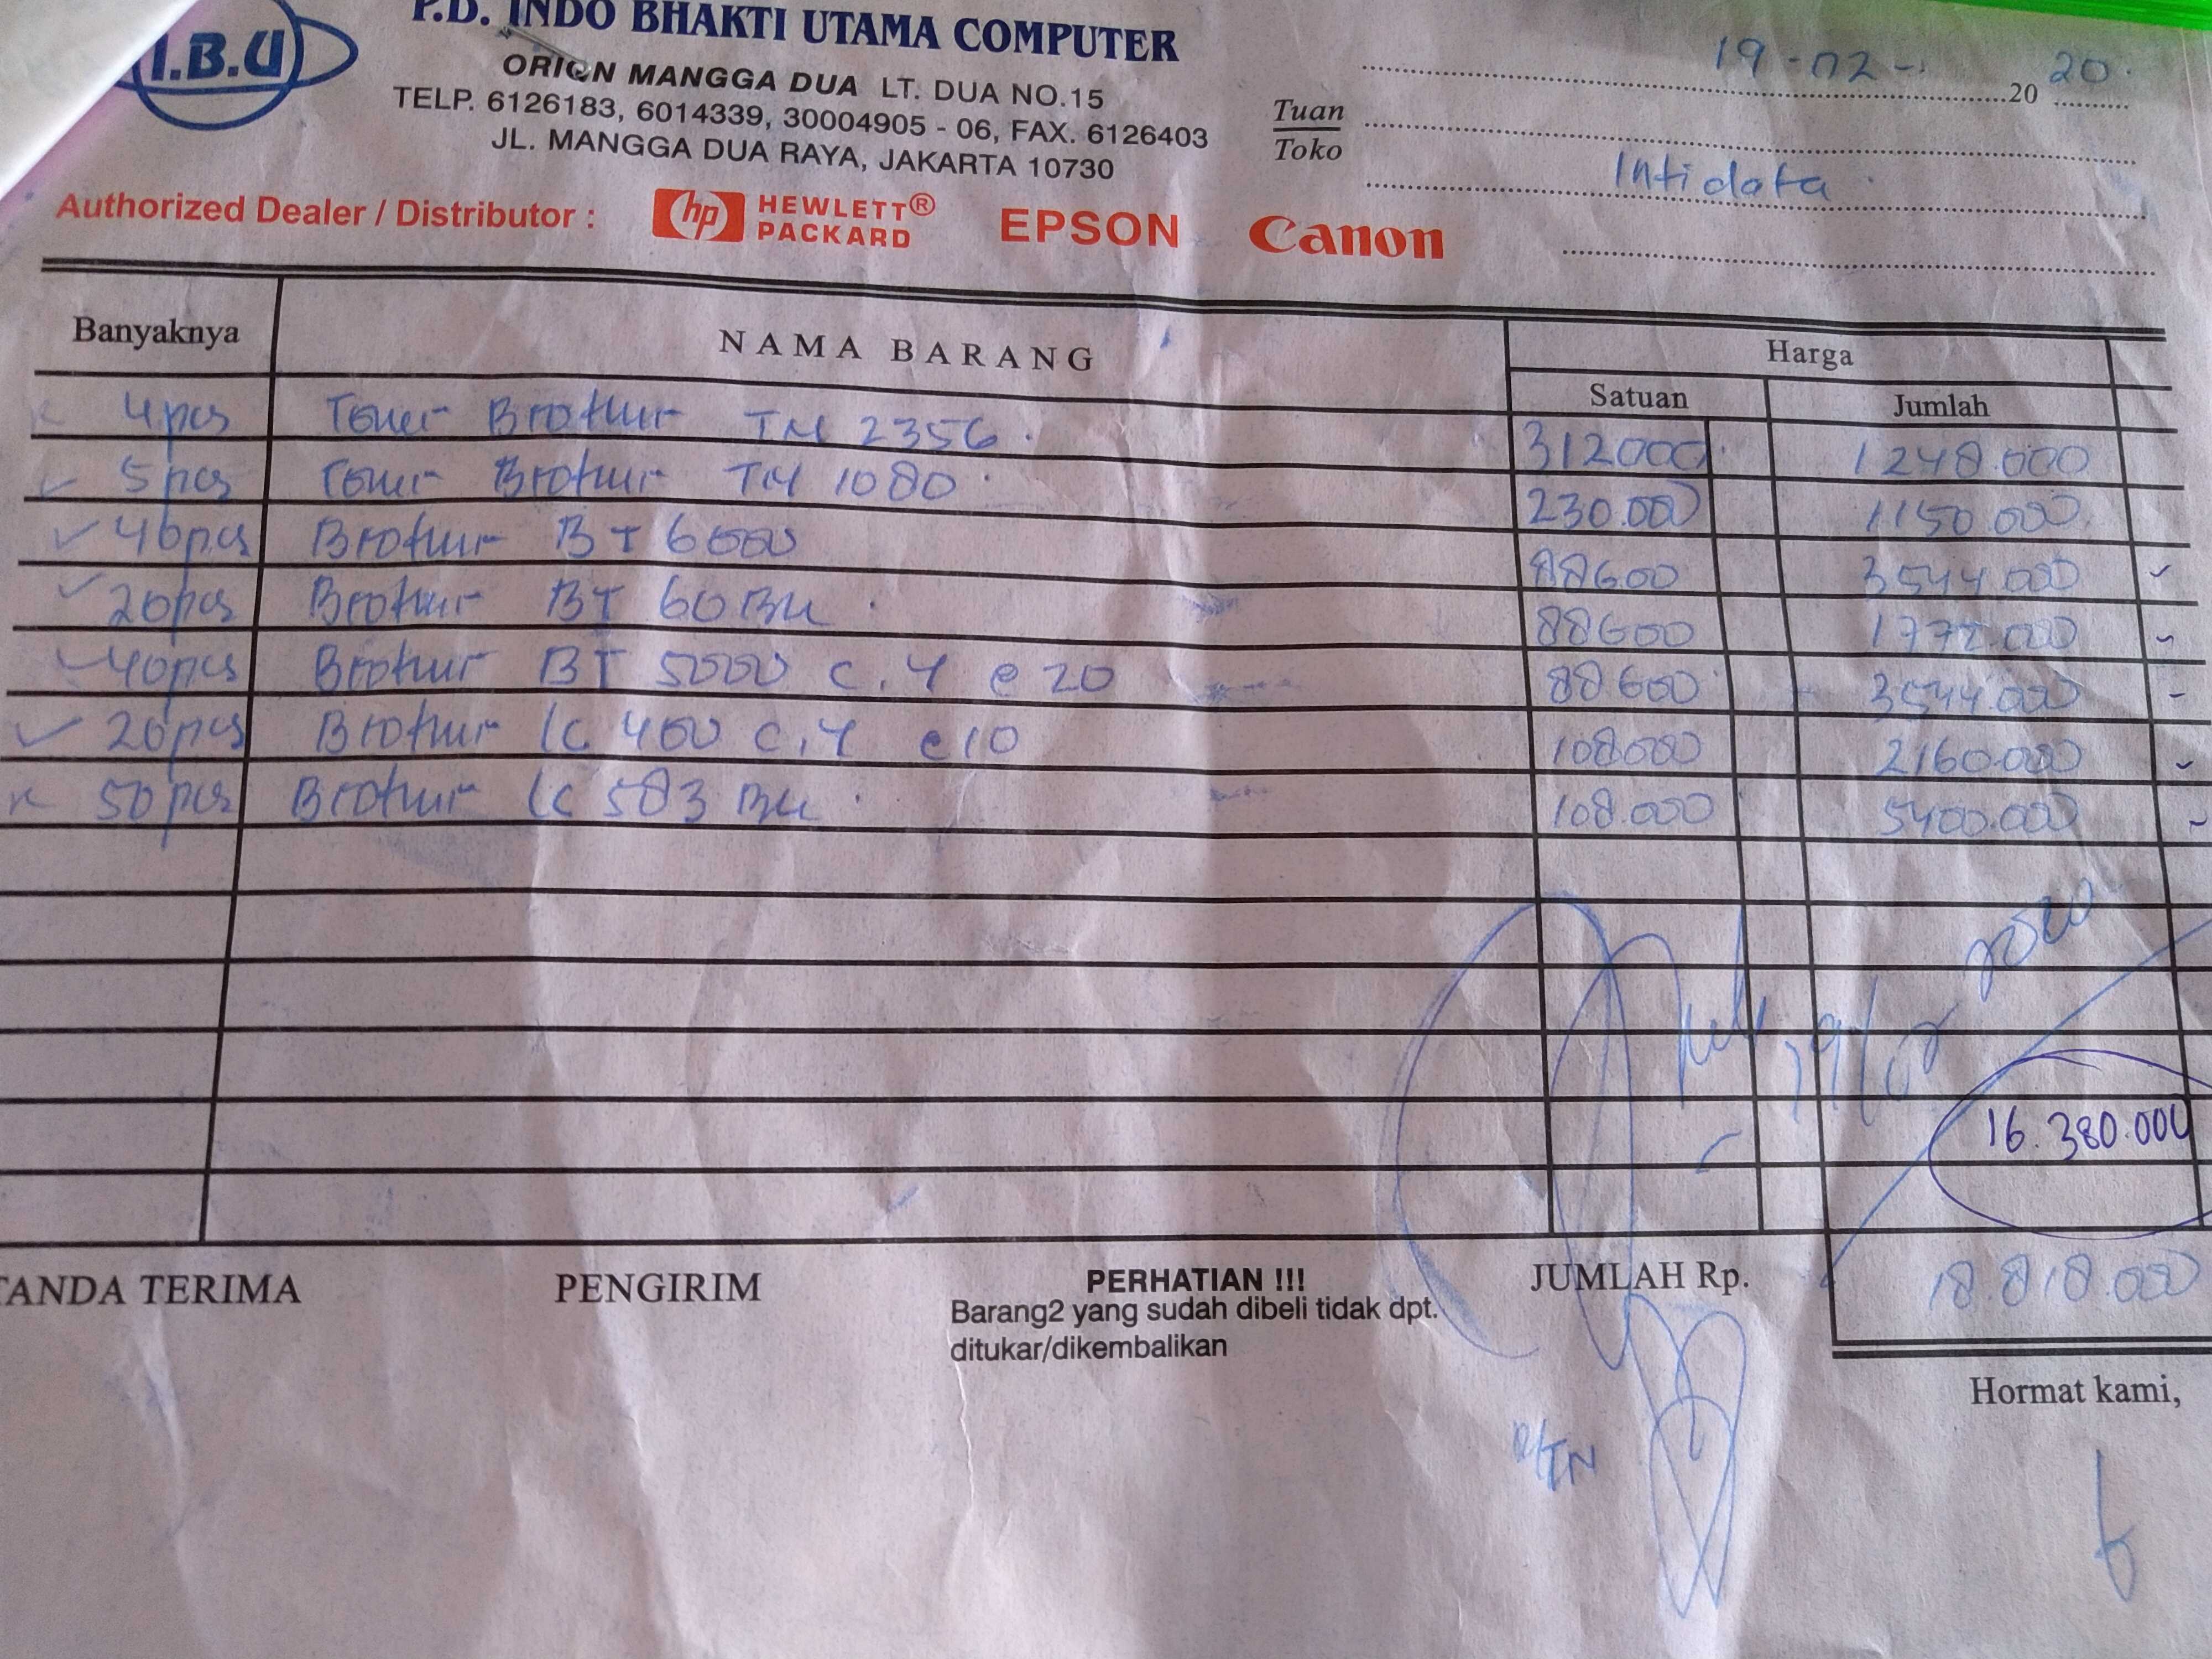 I.B.U
P.D. INDO BHAKTI UTAMA COMPUTER
ORION MANGGA DUA LT. DUA NO.15
TELP. 6126183, 6014339, 30004905 - 06, FAX. 6126403
JL. MANGGA DUA RAYA, JAKARTA 10730
19-02- 20 20
Tuan
Toko
Intidata
Authorized Dealer / Distributor : hp HEWLETT® PACKARD EPSON Canon
Banyaknya NAMA BARANG Harga
Satuan Jumlah
4pcs Toner Brother TN 2356 312000 1248.000
5pcs Toner Brother TN 1080 230.000 1150.000
40pcs Brother BT 6000 88600 3544.000
20pcs Brother BT 60BK 88600 1772.000
40pcs Brother BT 5000 C.Y @ 20 88600 3544.000
20pcs Brother LC 400 C.Y @10 108000 2160.000
50pcs Brother LC 583 BK 108.000 5400.000
19/02 2020
16.380.000
TANDA TERIMA PENGIRIM PERHATIAN !!! JUMLAH Rp. 18.818.000
Barang2 yang sudah dibeli tidak dpt.
ditukar/dikembalikan
Hormat kami,